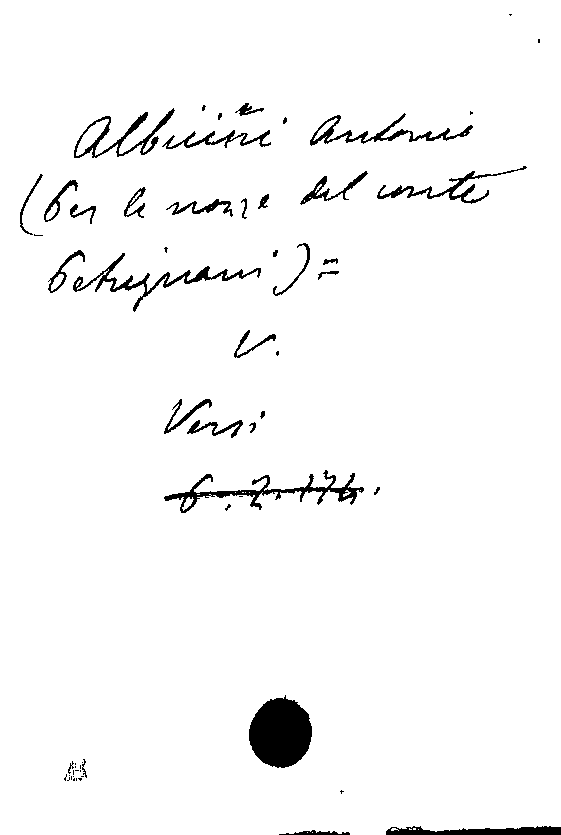 Albicini Antonio
(Per le nozze del conte
Petrignani) =
V.
Versi
6.2.174.